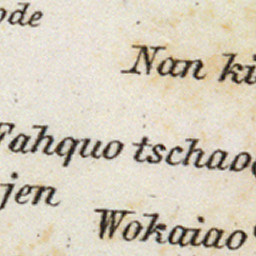 ode
Nan ki
Fahquo tschao
jen
Wokaiao